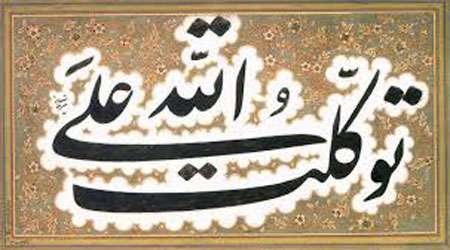 توكّلتُ علَى اللّٰه